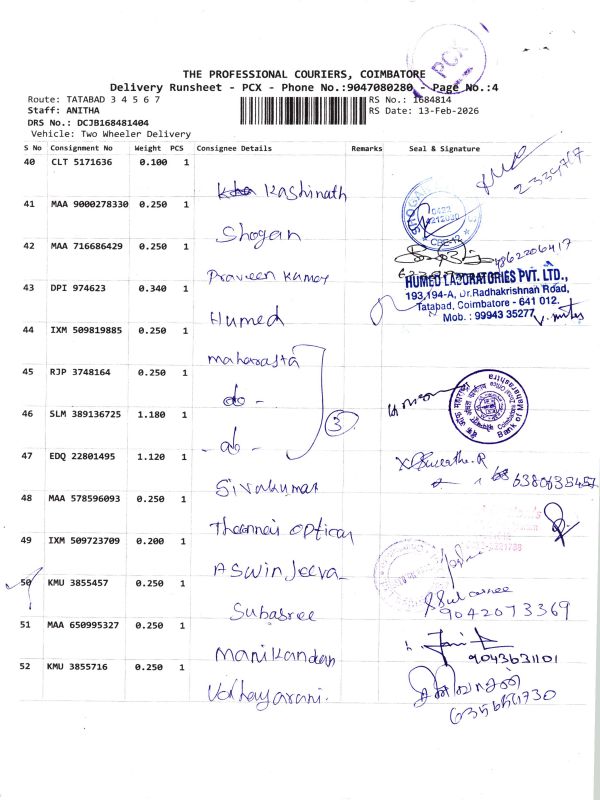 PCX
THE PROFESSIONAL COURIERS, COIMBATORE
Delivery Runsheet - PCX - Phone No.:9047080280 - Page No.:4
Route: TATABAD 3 4 5 6 7 RS No.: 1684814
Staff: ANITHA RS Date: 13-Feb-2026
DRS No.: DCJB168481404
Vehicle: Two Wheeler Delivery
S No Consignment No Weight PCS Consignee Details Remarks Seal & Signature
40 CLT 5171636 0.100 1
Kashinath
41 MAA 9000278330 0.250 1
Shogan
42 MAA 716686429 0.250 1
Praveen Kumar
43 DPI 974623 0.340 1
HUMED LABORATORIES PVT. LTD.,
193,194-A, Dr.Radhakrishnan Road,
Tatabad, Coimbatore - 641 012.
Mob. : 99943 35277
Humed
44 IXM 509819885 0.250 1
maharasta
45 RJP 3748164 0.250 1
-do-
46 SLM 389136725 1.180 1
3
-do-
Bank of Maharashtra
47 EDQ 22801495 1.120 1
Sivakumar
48 MAA 578596093 0.250 1
Thannai optical
49 IXM 509723709 0.200 1
Aswin Jeeva
50 KMU 3855457 0.250 1
Subasree
9042073369
51 MAA 650995327 0.250 1
Manikandan
9043631101
52 KMU 3855716 0.250 1
Udhayarani.